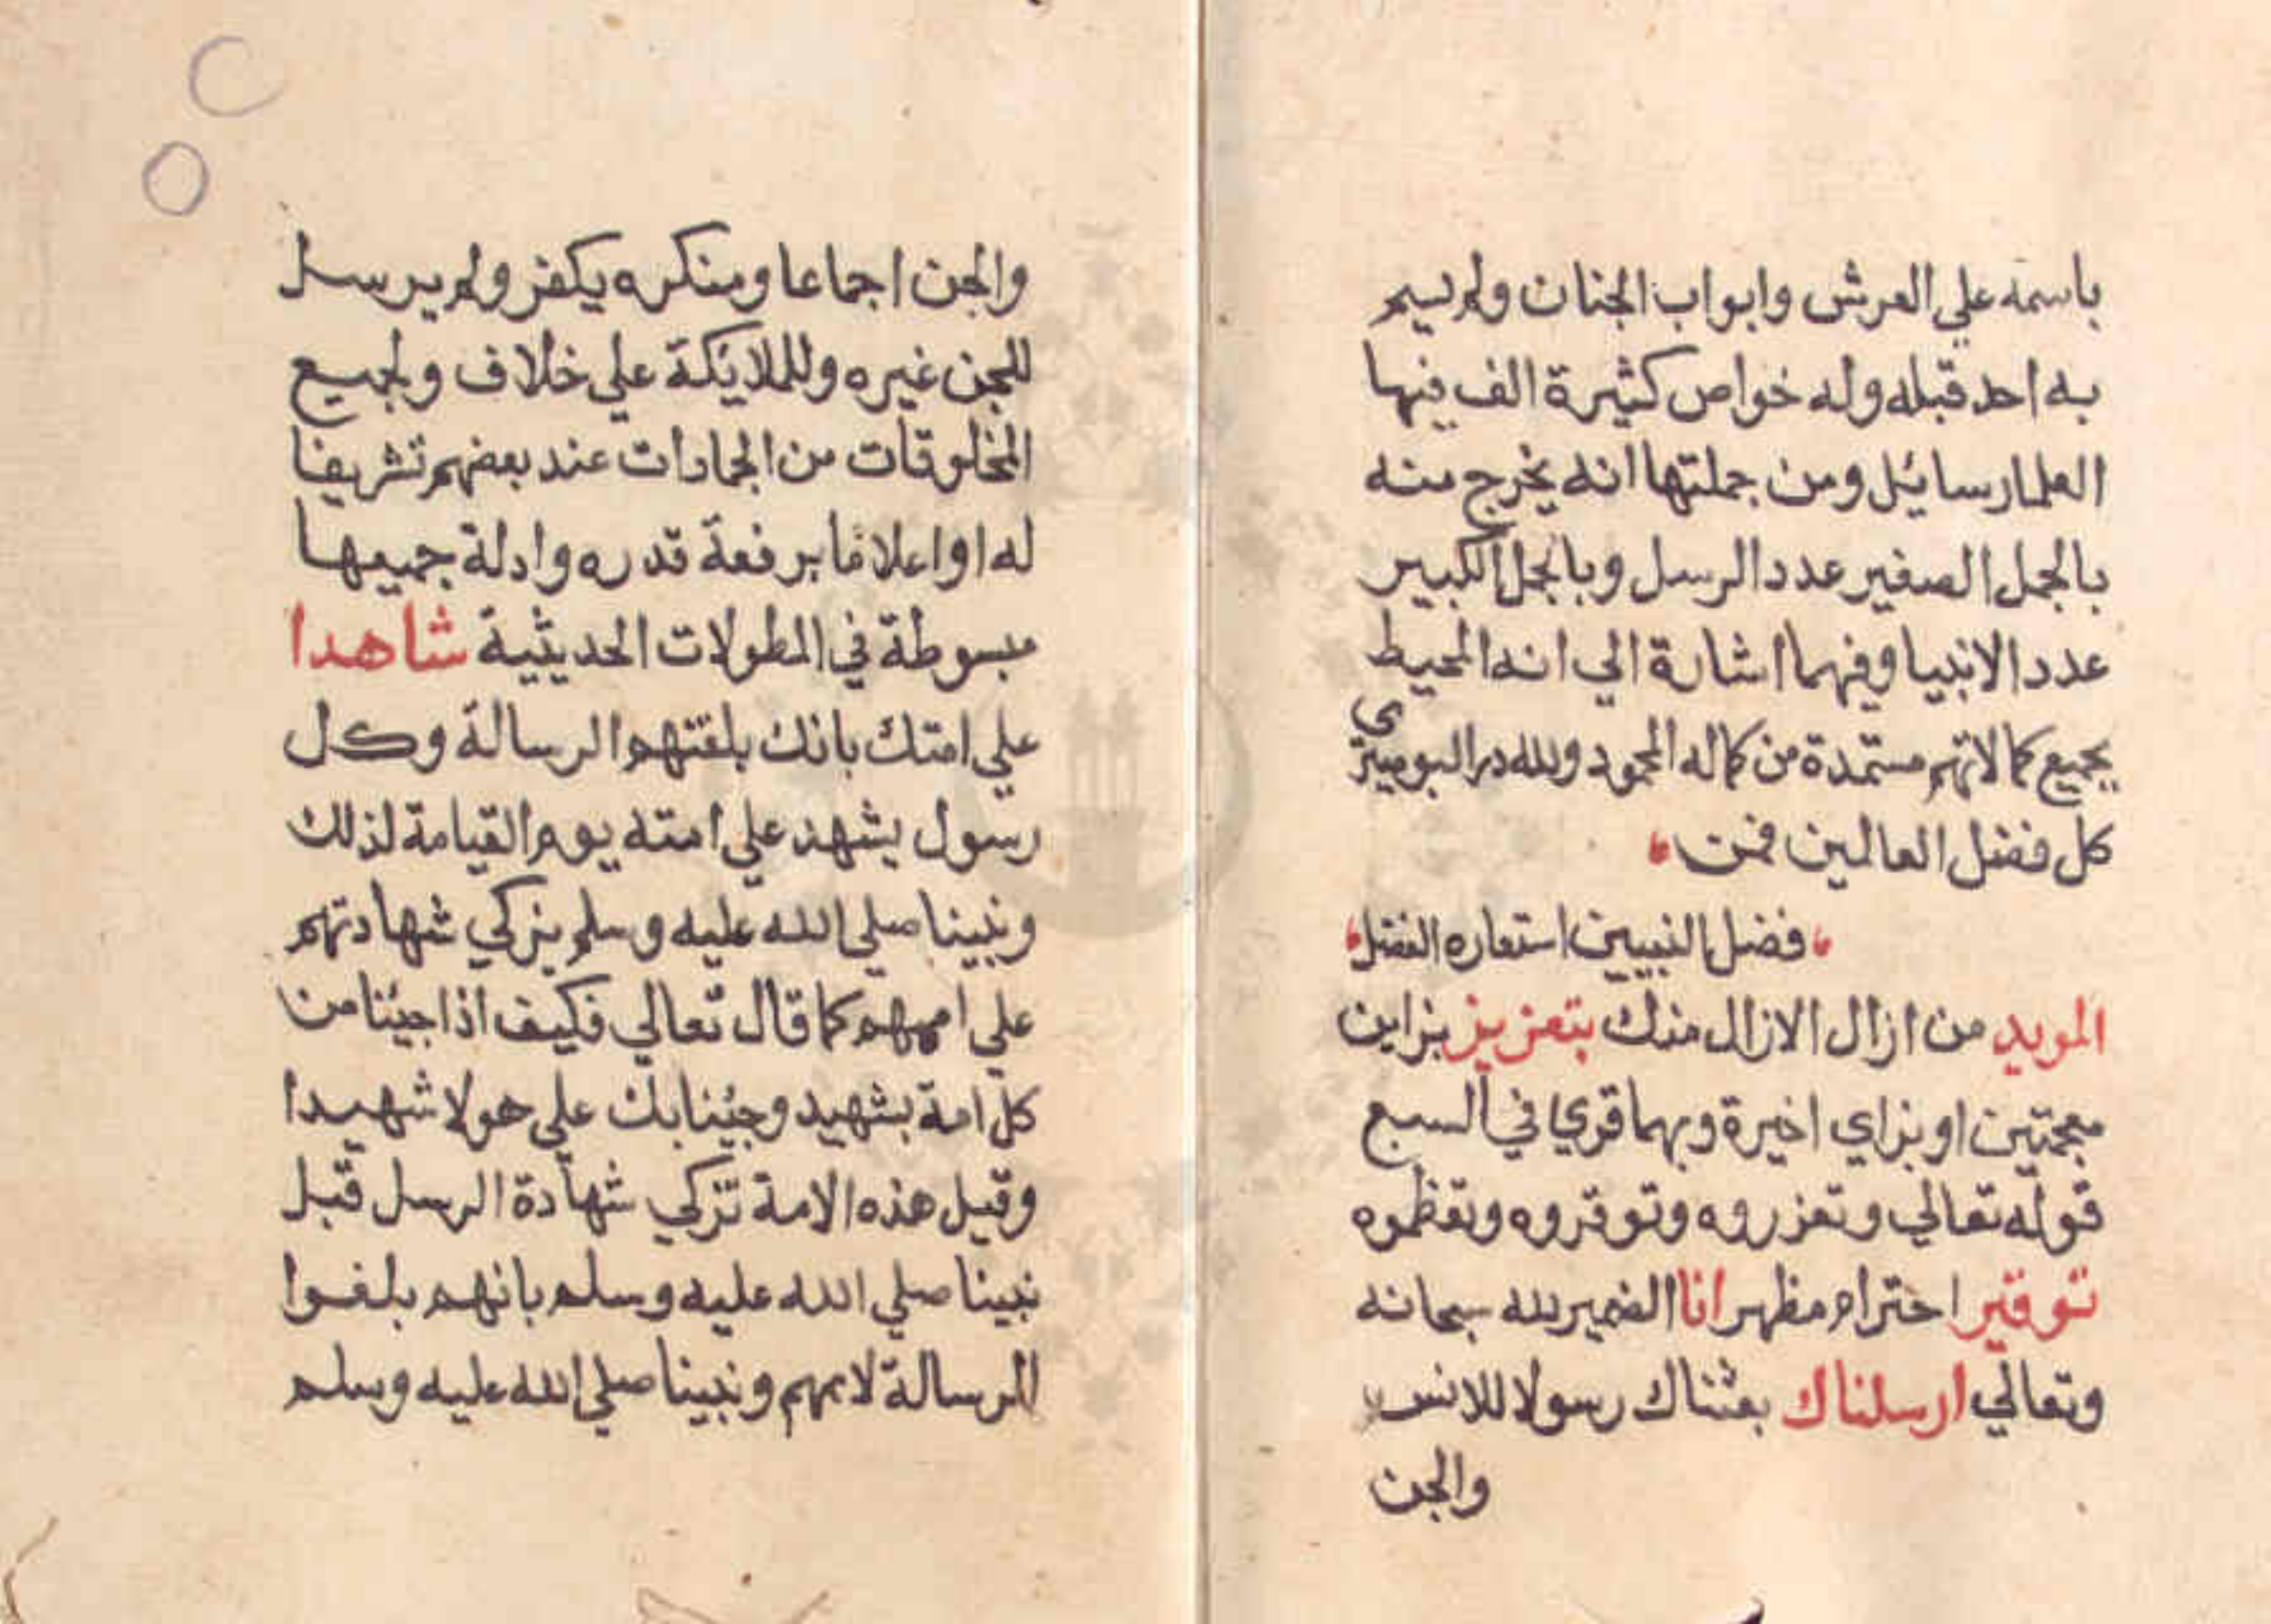 باسمه علي العرش وابواب الجنان ولم يسم
به احد قبله وله خواص كثيرة الف فيها
العلما رسائيل ومن جملتها انه يخرج منه
بالجمل الصغير عدد الرسل وبالجمل الكبير
عدد الانبيا وفيهما اشارة الي انه المحيط
بجميع كمالاتهم مستمدة من كماله المحمود ولله در البوصيري
كل فضل العالمين فمن
فضل النبيين استعاره الفضل
المويد من ازال الازال منك بتعزيز بزاين
معجمتين او بزاي اخيرة وبهما قري في السبع
قوله تعالي وتعزروه وتوقروه وتعظموه
توقير احترام مظهر انا الضمير لله سبحانه
وتعالي ارسلناك بعثناك رسولا للانس
والجن
والجن اجماعا ومنكره يكفر ولم يرسل
للجن غيره وللملايكة علي خلاف ولجميع
المخلوقات من الجمادات عند بعضهم تشريفا
له او اعلاما برفعة قدره وادلة جميعها
مبسوطة في المطولات الحديثية شاهدا
علي امتك بانك بلغتهم الرسالة وكل
رسول يشهد علي امته يوم القيامة لذلك
ونبينا صلي الله عليه وسلم يزكي شهادتهم
علي اممهم كما قال تعالي فكيف اذا جينا من
كل امة بشهيد وجينا بك علي هولا شهيدا
وقيل هذه الامة تزكي شهادة الرسل قبل
نبينا صلي الله عليه وسلم بانهم بلغوا
الرسالة لاممهم ونبينا صلي الله عليه وسلم